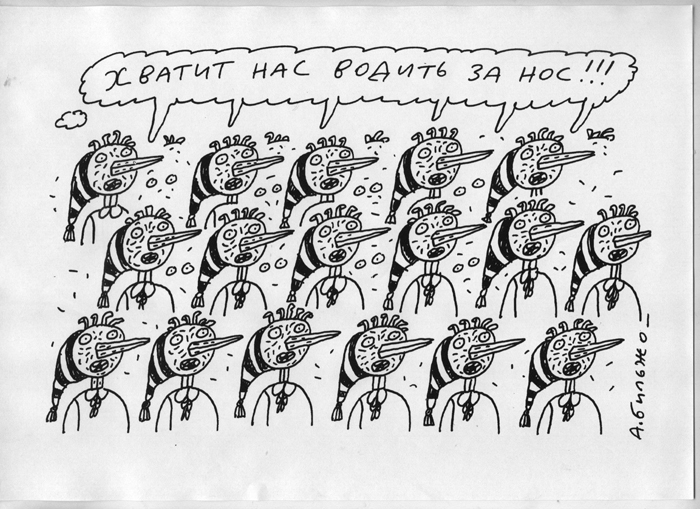 ХВАТИТ НАС ВОДИТЬ ЗА НОС!!!
А. Бильжо_